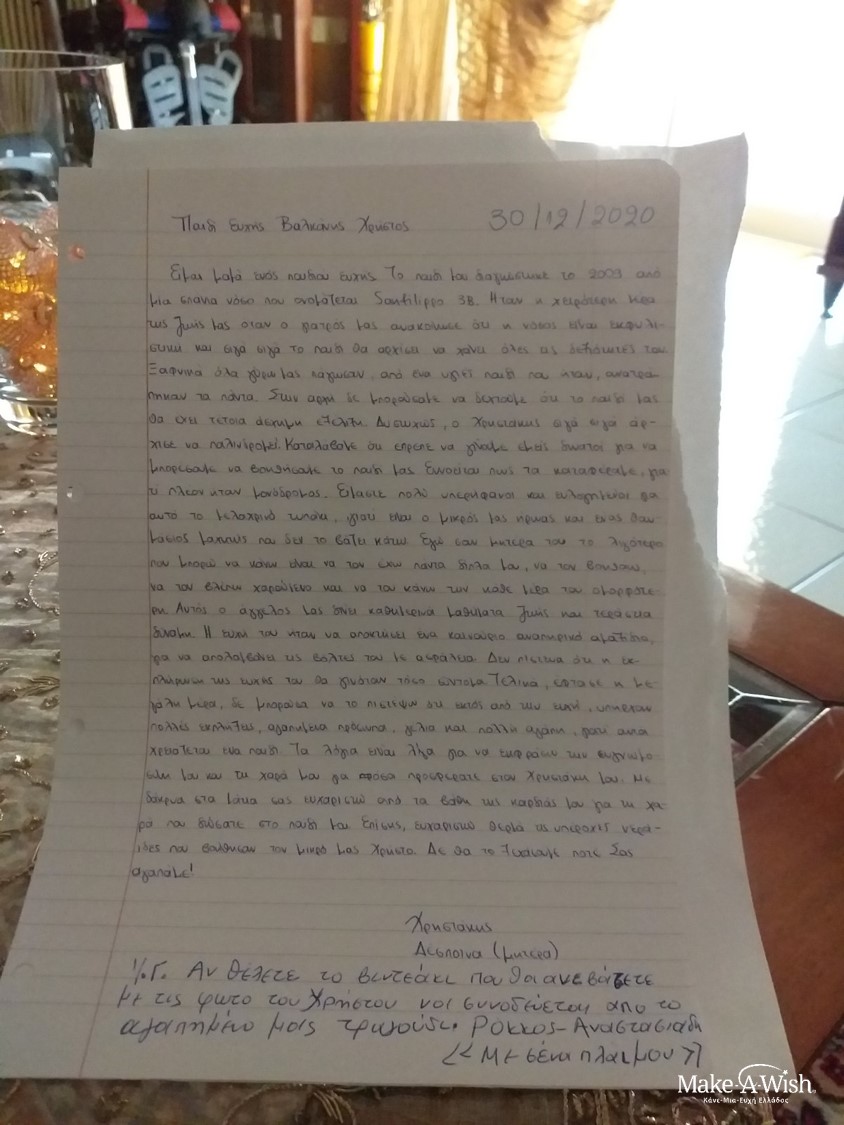 Παιδί Ευχής Βαλκάνης Χρήστος
30/12/2020
Είμαι μαμά ενός παιδιού ευχής. Το παιδί μου διαγνώστηκε το 2009 από
μια σπάνια νόσο που ονομάζεται Sanfilippo 3B. Ήταν η χειρότερη μέρα
της ζωής μας όταν ο γιατρός μας ανακοίνωσε ότι η νόσος είναι εκφυλι-
στική και σιγά σιγά το παιδί θα αρχίσει να χάνει όλες τις δεξιότητές του
Ξαφνικά όλα γύρω μας πάγωσαν, από ένα υγιές παιδί που ήταν, ανατρά-
πηκαν τα πάντα. Στην αρχή δε μπορούσαμε να δεχτούμε ότι το παιδί μας
θα έχει τέτοια άσχημη εξέλιξη. Δυστυχώς, ο Χρηστάκης σιγά σιγά άρ-
χισε να παλινδρομεί. Καταλάβαμε ότι έπρεπε να γίνουμε εμείς δυνατοί για να
μπορέσουμε να βοηθήσουμε το παιδί μας. Εννοείται πως τα καταφέραμε, για-
τί πλέον ήταν μονόδρομος. Είμαστε πολύ υπερήφανοι και ευλογημένοι για
αυτό το μελαχρινό τυπάκι, γιατί είναι ο μικρός μας ήρωας και ένας θαυ-
μάσιος μαχητής που δεν το βάζει κάτω. Εγώ σαν μητέρα του το λιγότερο
που μπορώ να κάνω είναι να τον έχω πάντα δίπλα μου, να τον βοηθάω,
να τον βλέπω χαρούμενο και να του κάνω την κάθε μέρα του ομορφότε-
ρη. Αυτός ο άγγελος μας δίνει καθημερινά μαθήματα ζωής και τεράστια
δύναμη. Η ευχή του ήταν να αποκτήσει ένα καινούριο αναπηρικό αμαξίδιο,
για να απολαμβάνει τις βόλτες του με ασφάλεια. Δεν πίστευα ότι η εκ-
πλήρωση της ευχής του θα γινόταν τόσο σύντομα. Τελικά, έφτασε η με-
γάλη μέρα, δε μπορούσα να το πιστέψω ότι εκτός από την ευχή, υπήρχαν
πολλές εκπλήξεις, αγαπημένα πρόσωπα, γέλια και πολλή αγάπη, γιατί αυτά
χρειάζεται ένα παιδί. Τα λόγια είναι λίγα για να εκφράσω την ευγνωμο-
σύνη μου και τη χαρά μου για όσα προσφέρατε στον Χρηστάκη μου. Με
δάκρυα στα μάτια σας ευχαριστώ από τα βάθη της καρδιάς μου για τη χα-
ρά που δώσατε στο παιδί μου. Επίσης, ευχαριστώ θερμά τις υπέροχες νερά-
ιδες που βοήθησαν τον μικρό μας Χρήστο. Δε θα το ξεχάσουμε ποτέ. Σας
αγαπάμε!
Χρηστάκης
Δέσποινα (μητέρα)
Υ.Γ. Αν θέλετε το βιντεάκι που θα ανεβάζετε
με τις φωτο του Χρήστου να συνοδεύεται απο το
αγαπημένο μας τραγούδι. Ρόκκος-Αναστασιάδη
<<Με σένα πλάι μου>>
Make-A-Wish®
Κάνε-Μια-Ευχή Ελλάδος